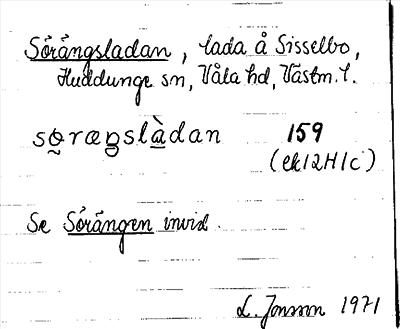 Sörängsladan, lada å Sisselbo,
Huddunge sn, Våla hd, Västm. l.
sɵ̰ræŋslàdan 159
(ek 12H1c)
Se Sörängen invid.
L. Jonsson 1971